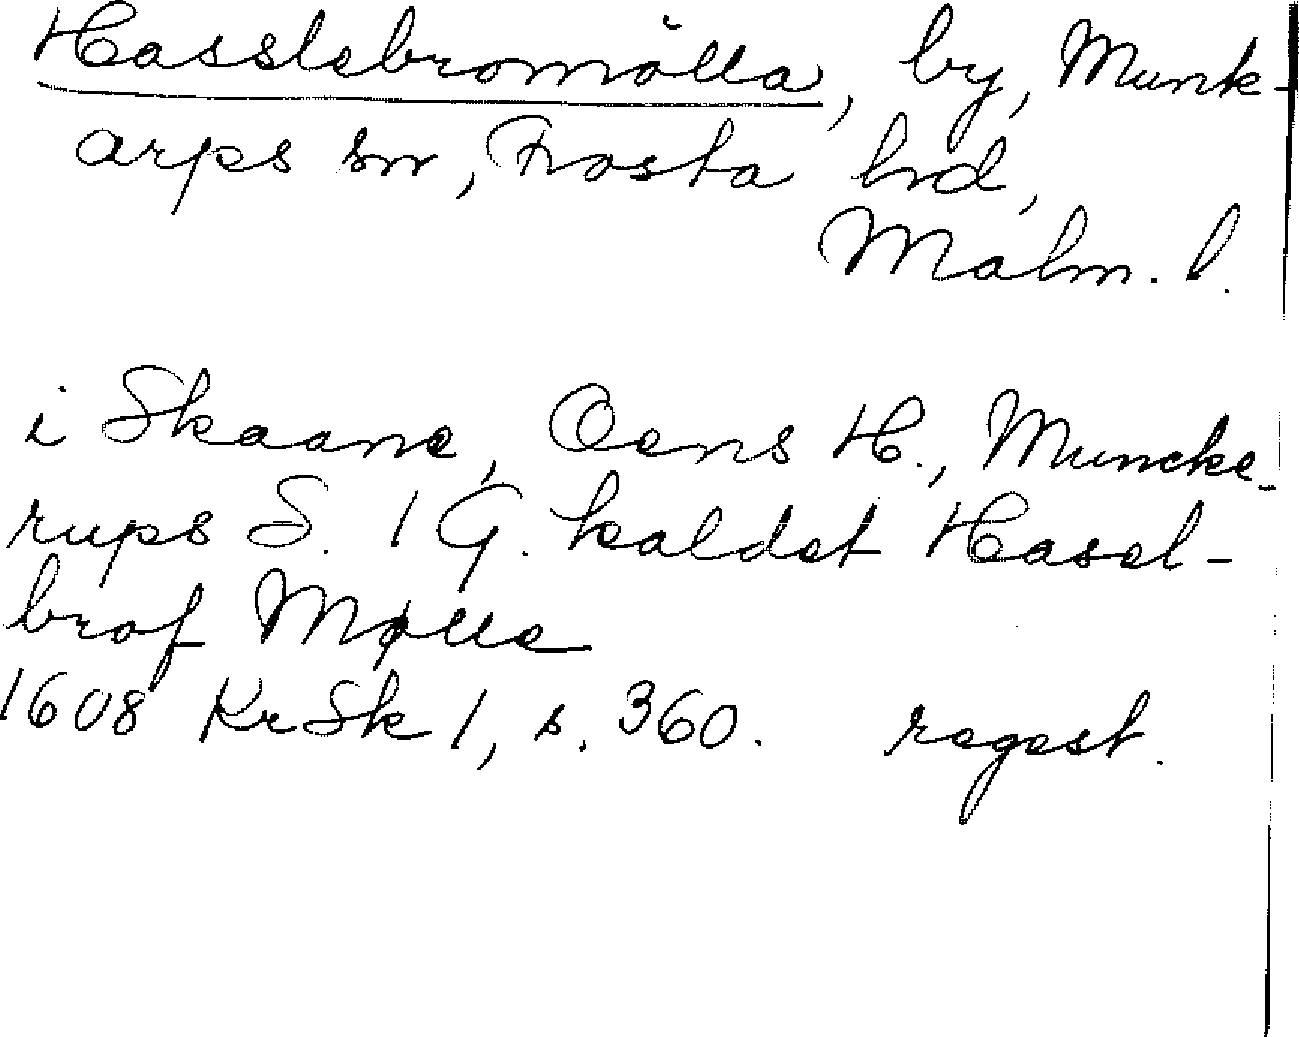 Hasslebromölla, by, Munk-
arps sn, Frosta hd,
Malm. l.
i Skaane, Oens H., Muncke-
rups S. 1 G. kaldet Hasel-
brof Mølle
1608 KrSk 1, s. 360. regest.